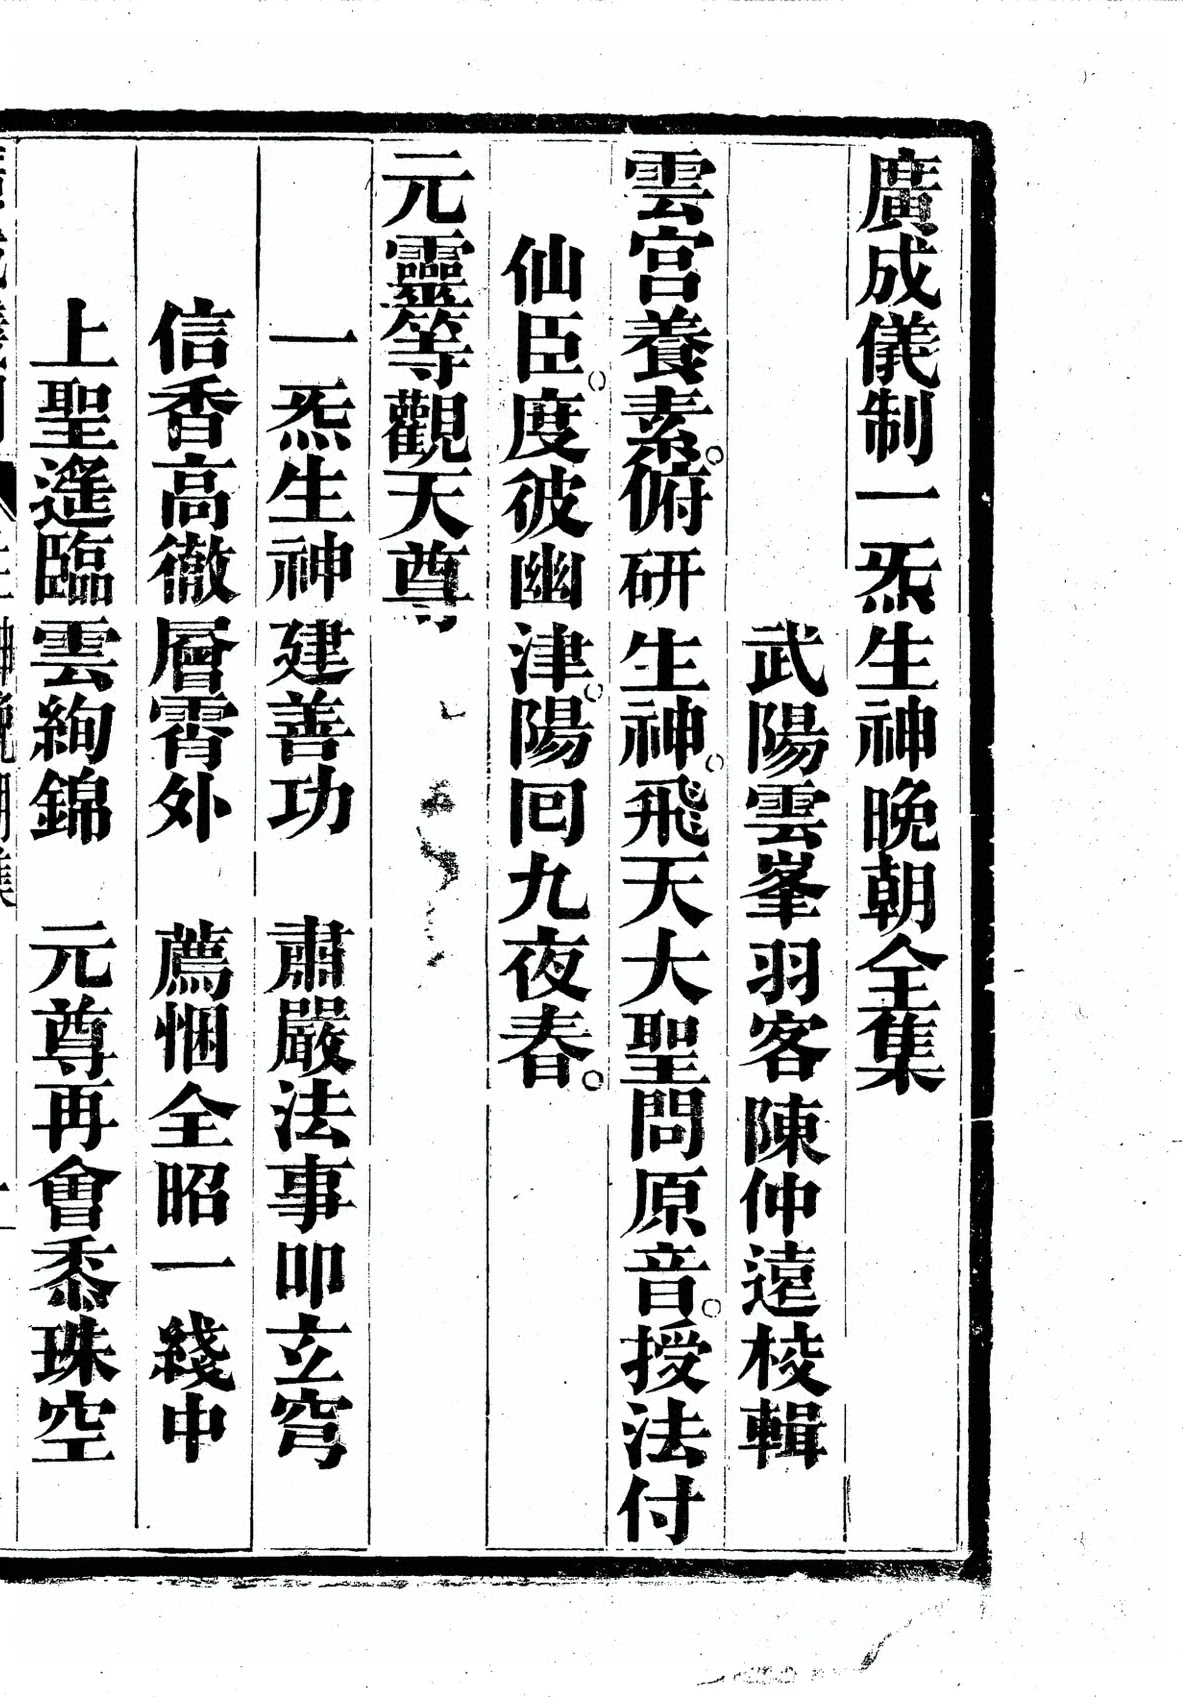 廣成儀制一炁生神晚朝全集
武陽雲峯羽客陳仲遠校輯
雲宮養素。俯研生神。飛天大聖問原音。授法付
仙臣。度彼幽津。陽囘九夜春。
元靈等觀天尊
一炁生神建善功　肅嚴法事叩玄穹
信香高徹層霄外　薦悃全昭一綫中
上聖遙臨雲絢錦　元尊再會黍珠空